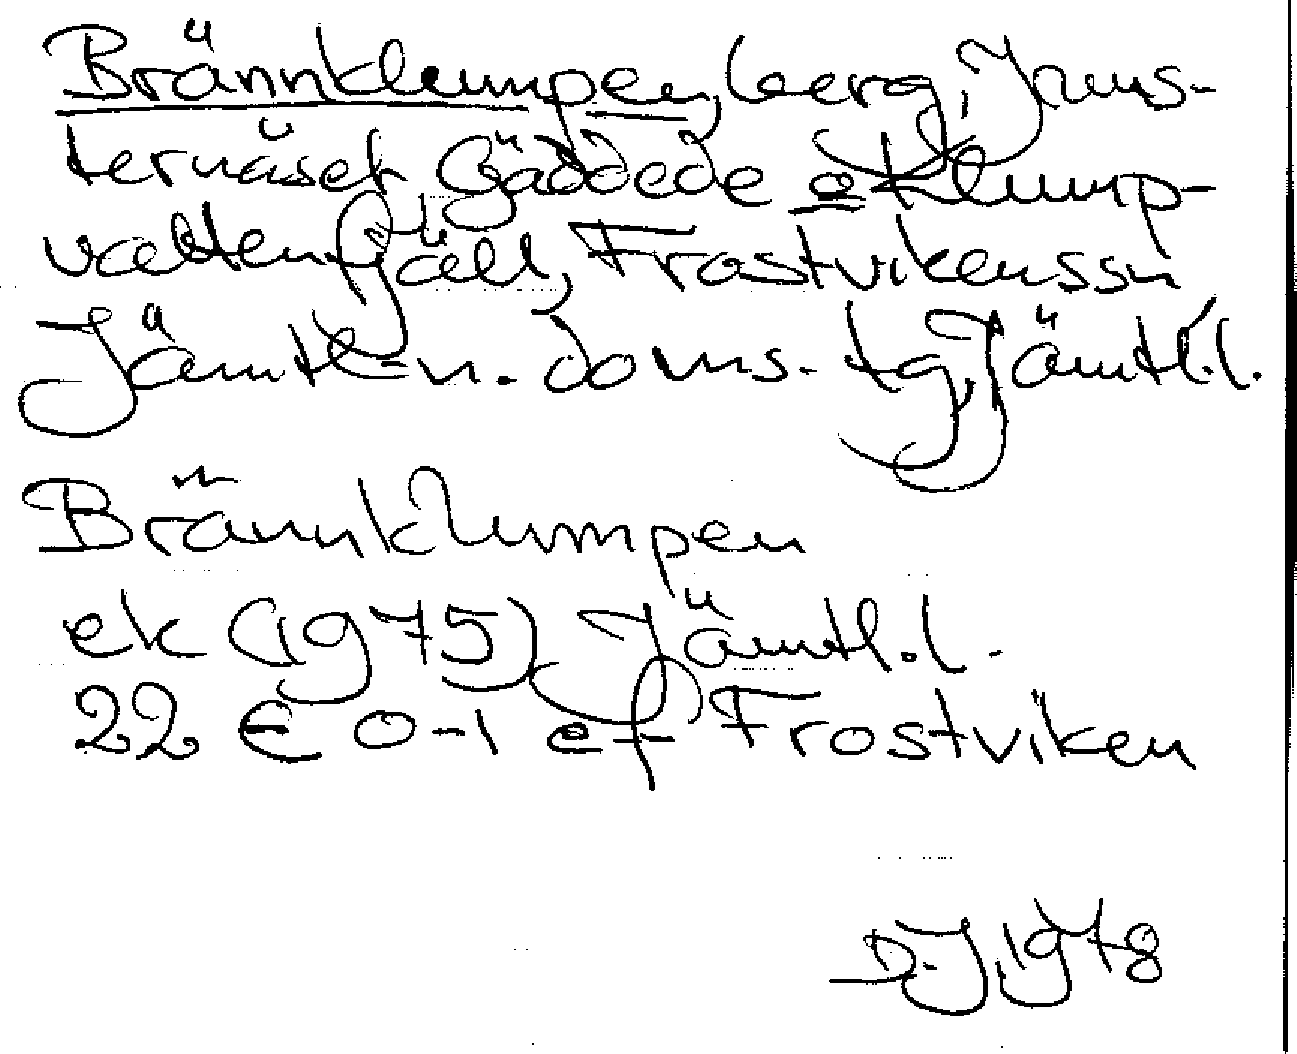 Brännklumpen, berg, Juns-
ternäset, Gäddede o Klump-
vattenfjäll, Frostvikens sn
Jämtl-n. doms. tg, Jämtl.l.
Brännklumpen
ek (1975) Jämtl.l.
22 E 0-1 ef Frostviken
D.J. 1978